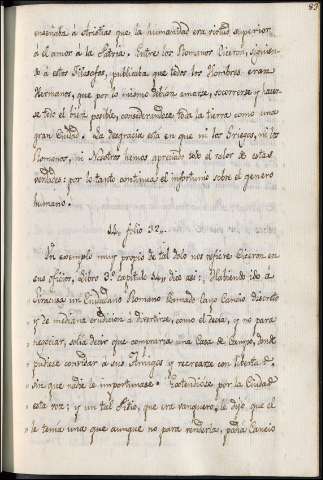 83
enseñaba à otristias que la humanidad era virtud superior
à el amor à la Patria. Entre los Romanos Ciceron, siguien-
do à estos Filosofos, publicaba que todos los Hombres eran
Hermanos, que por lo mismo debian amarse, socorrerse y hacer-
se todo el bien posible, considerandose toda la tierra como una
gran Ciudad. La desgracia esta en que ni los Griegos, ni los
Romanos, ni Nosotros hemos apreciado todo el valor de estas
verdades: por lo tanto continua el infortunio sobre el genero
humano.
14 folio 32
Un exemplo muy proprio de tal dolo nos refiere Ciceron en
sus oficios, Libro 3º capitulo 14 dice asi: Habiendo ido à
Siracusa un Ciudadano Romano llamado Cayo Cancio discreto
y de mediana erudicion à divertirse, como el decia, y no para
negociar, solia decir que compraria una Casa de Campo, donde
pudiese convidar à sus Amigos y recrearse con libertad
sin que nadie le importunase. Extendiose por la Ciudad
esta voz; y un tal Pitio, que era vanquero, le dijo, que el
le tenia una que aunque no para venderla, podia Cancio